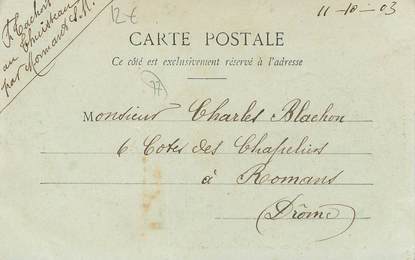 12€
11-10-03
CARTE POSTALE
Ce côté est exclusivement réservé à l'adresse
77
Monsieur Charles Blachon
6 Cotes des Chapeliers
à Romans
(Drôme)
au
par Mormant S.M.